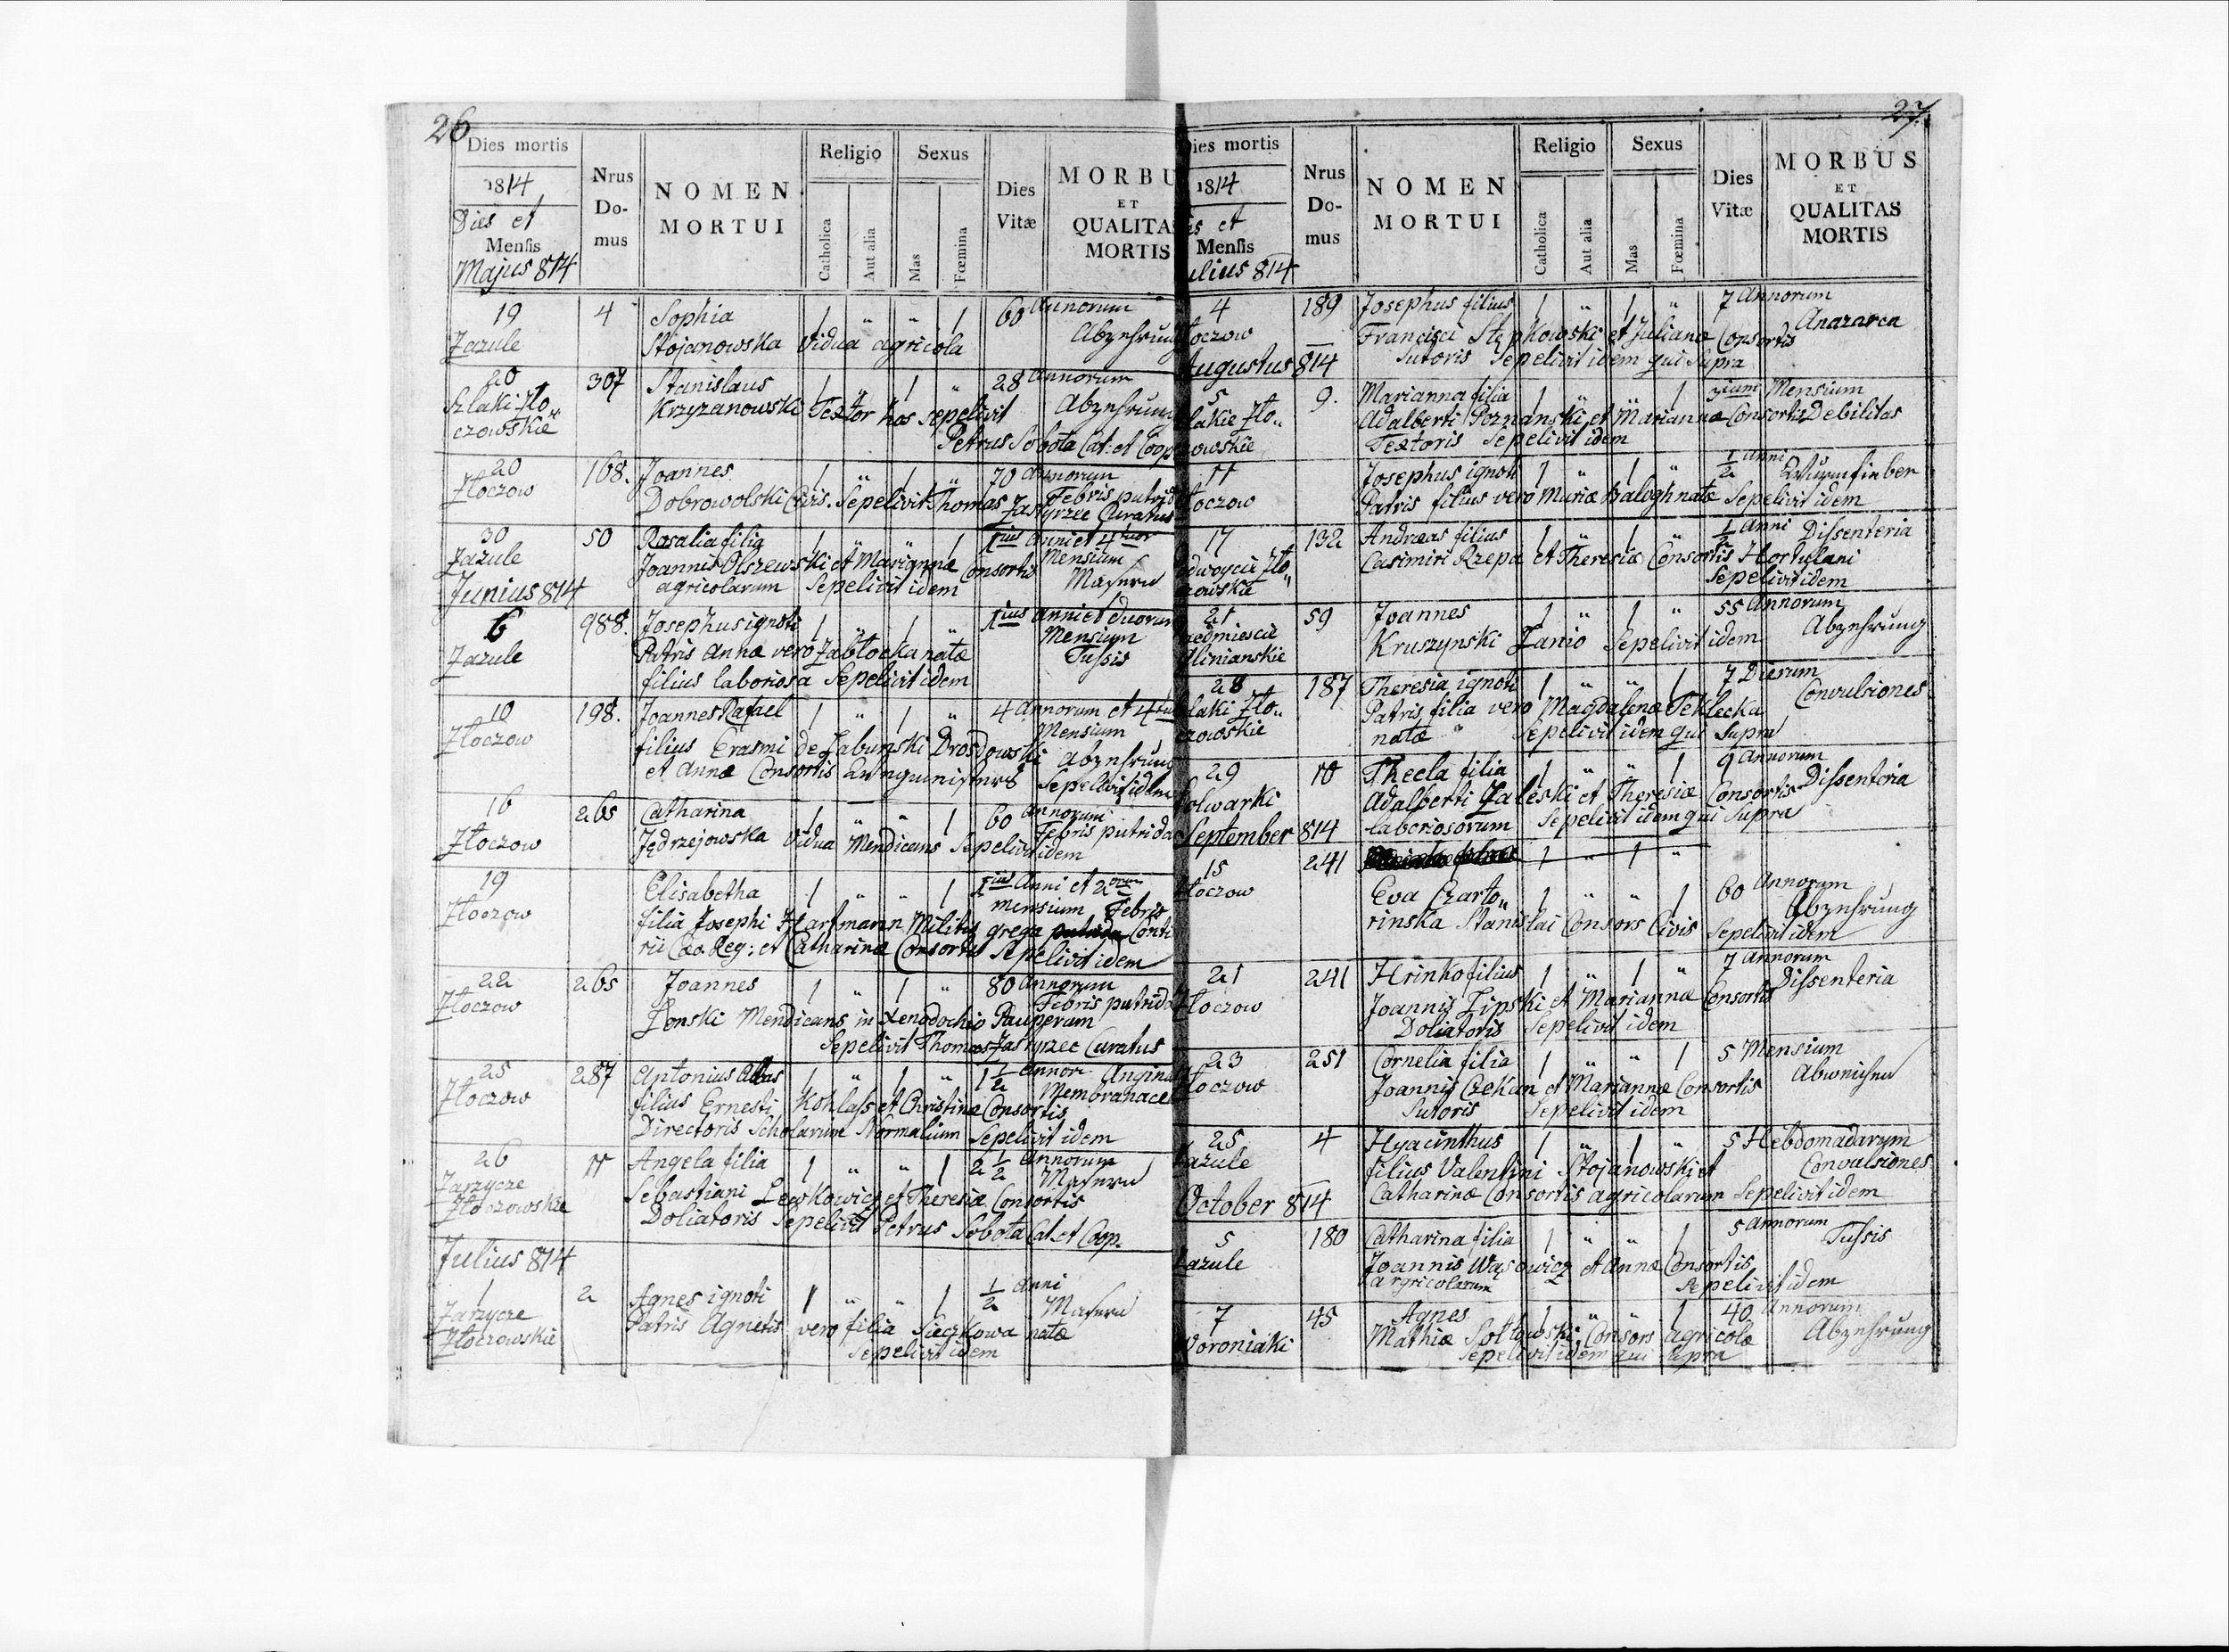 26
Dies mortis
1814
Dies et
Mensis
Majus 814
Nrus
Do-
mus
NOMEN
MORTUI
Religio
Catholica
Aut alia
Sexus
Mas
Fœmina
Dies
Vitæ
MORBU
ET
QUALITA
MORTIS
19 4 Sophia 1 " " 1 60 Annorum
Zazule Stojanowska Vidua agricola Abzehrung
20 307 Stanislaus 1 1 " 28 Annorum
Szlaki Zło„ Krzyzanowski Textor hos sepelivit Abzehrung
czowskie Petrus Sobota Cat: et Coop
20 168. Joannes 1 " 1 " 70 Annorum
Złoczow Dobrowolski Civis. Sepelivit Thomas Zastyrzec Curatus Febris putrid
30 50 Rosalia filia 1 " " 1 1ius Anni et 4tuor
Zazule Joannis Olszewski et Marianna Consortis Mensium
Junius 814 agricolarum Sepelivit idem Masern
6 988. Josephus ignoti 1 " 1 " 1ius Anni et duorum
Zazule Patris Annæ vero Zabłocka natæ Mensium
filius laboriosa Sepelivit idem Tussis
10 198. Joannes Rafael 1 " 1 " 4 Annorum et 4tu
Złoczow filius Erasmi de Zabunski Drosdowski Mensium
et Annæ Consortis Abzehrung
Sepelivit idem
16 265 Catharina 1 " " 1 60 Annorum
Złoczow Jędrzejowska Vidua Mendicans Sepelivit idem Febris putrida
19 Elisabetha 1 " " 1 1ius Anni et 2orum
Złoczow filia Josephi Hartmann Militis grega mensium Febris
rii Cæo. Reg: et Catharinæ Consortis Sepelivit idem Conti
22 265 Joannes 1 " 1 " 80 Annorum
Złoczow Lonski Mendicans in Xenodochio Pauperum Febris putrida
Sepelivit Thomas Zastyrzec Curatus
25 287 Antonius 1 " 1 " 1 1/2 Annor. Angina
Złoczow filius Ernesti Kohlass et Christinæ Consortis Membranace
Directoris Scholarum Normalium Sepelivit idem
26 11 Angela filia 1 " " 1 2 1/2 Annorum
Zarzycze Sebastiani Lewkowicz et Theresiæ Consortis Masern
Złoczowskie Doliatoris Sepelivit Petrus Sobota Cat. et Coop.
Julius 814
1 2 Agnes ignoti 1 " " 1 1/2 Anni
Zarzycze Patris Agnetis vero filia Sieczkowa natæ Masern
Złoczowskie Sepelivit idem
27.
ies mortis
1814
is et
Mensis
ulius 814
Nrus
Do-
mus
NOMEN
MORTUI
Religio
Catholica
Aut alia
Sexus
Mas
Fœmina
Dies
Vitæ
MORBUS
ET
QUALITAS
MORTIS
4 189 Josephus filius 1 " 1 " 7 Annorum
łoczow Francisci Stępkowski et Julianæ Consortis Anazarca
Augustus 814 Sutoris Sepelivit idem qui Supra
5 9. Marianna filia 1 " " 1 3ium Mensium
zlakie Zło„ Adalberti Poznanski et Mariannæ Consortis Debilitas
zowskie Textoris Sepelivit idem
11 Josephus ignoti 1 " 1 " 1/2 Anni
łoczow Patris filius vero Mariæ Balogh natæ Sepelivit idem
17 132 Andreas filius 1 " 1 " 1/2 Anni Dissenteria
odwoycie Zło„ Casimiri Rzepa et Theresiæ Consortis Hortulani
zowskie Sepelivit idem
21 59 Joannes 1 " 1 " 55 Annorum
zedmiescie Kruszynski Lanio Sepelivit idem Abzehrung
linianskie
28 187 Theresia ignoti 1 " " 1 7 Dierum
zlaki Zło„ Patris filia vero Magdalenæ Teklecka Convulsiones
czowskie natæ " Sepelivit idem qui Supra
29 10 Thecla filia 1 " " 1 9 Annorum
olwarki Adalberti Zaleski et Theresiæ Consortis Dissenteria
September 814 laboriosorum Sepelivit idem qui Supra
15 241 1 " 1 "
łoczow Eva Czarto„ 1 " " 1 60 Annorum
rinska Stanislai Consors Civis Sepelivit idem Abzehrung
21 241 Hrinko filius 1 " 1 " 7 Annorum
łoczow Joannis Lipski et Mariannæ Consortis Dissenteria
Doliatoris Sepelivit idem
23 251 Cornelia filia 1 " " 1 5 Mensium
łoczow Joannis Czekan et Mariannæ Consortis Abweichen
Sutoris Sepelivit idem
25 4 Hyacinthus 1 " 1 " 5 Hebdomadarum
azule filius Valentini Stojanowski et Convulsiones
October 814 Catharinæ Consortis agricolarum Sepelivit idem
5 180 Catharina filia 1 " " 1 5 Annorum
azule Joannis Wąsowicz et Annæ Consortis Tussis
agricolarum Sepelivit idem
7 45 Agnes 1 " " 1 40 Annorum
Woroniaki Mathiæ Sołtowski Consors agricolæ Abzehrung
Sepelivit idem qui Supra